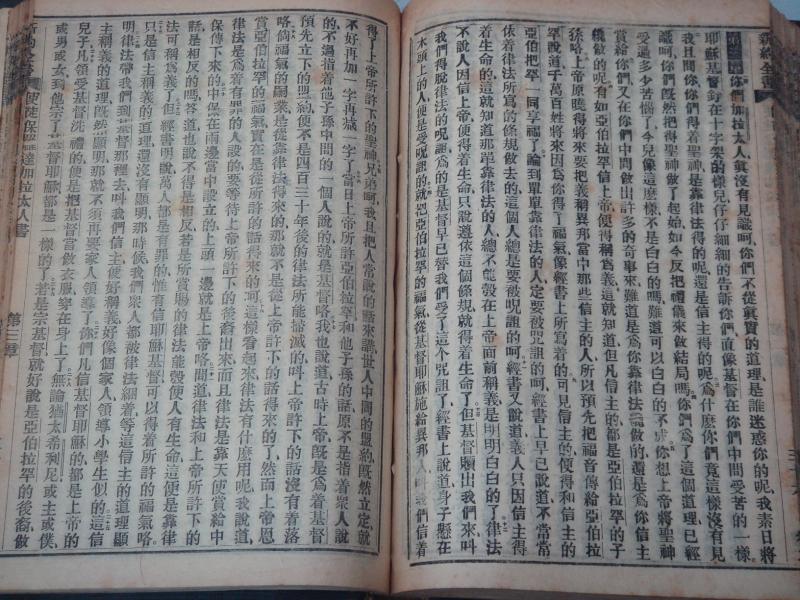 新約全書
你們加拉太人眞沒有見識呵你們不從眞實的道理是誰迷惑你的呢我素日將
耶穌基督釘在十字架的樣兒仔仔細細的告訴你們直像基督在你們中間受苦的一樣
我且問你們你們得着聖神是靠律法得的呢還是信主得的呢爲什麼你們竟這樣沒有見
識呵你們旣然把得聖神做了起始如今反把禮儀來做結局嗎你們爲了這個道理已經
受過多少苦惱了今兒像這麼樣不是白白的嗎難道可以白白的不成你想上帝將聖神
賞給你們又在你們中間做出許多的奇事來難道是爲你靠律法做的還是爲你信主
做的呢有如亞伯拉罕信上帝便得稱爲義這就知道但凡信主的都是亞伯拉罕的子
孫咯上帝原曉得將來要把義稱異邦當中那些信主的人所以預先把福音傳給亞伯拉
罕說道千萬百姓將來因爲你得了福氣像經書上所寫着的可見信主的便得和信主的
亞伯拉罕一同享福了論到單單靠律法的人定要被咒詛的呵經書上早已說道不常常
依着律法所寫的條規做去的這個人總是要被咒詛的呵經書又說道義人只因信主得
着生命的這就知道那單靠律法的人總不能彀在上帝面前稱義是明明白白的了律法
不說人因信上帝便得着生命的是只說遵依這個條規就得着生命了但基督贖出我們來叫
我們得脫律法的咒詛爲的是基督早已替我們受了這個咒詛了經書上說道身子懸在
木頭上的人便是受咒詛的就把亞伯拉罕的福氣從基督耶穌施給異邦人叫我們信着
得了上帝所許下的聖神兄弟呵我且把人常說的話來講世人中間的盟約旣然立定就
不好再加一字再減一字了當日上帝所許亞伯拉罕和他子孫的話原不是指着衆人說
的不過指着他子孫中間的一個人說的就是基督咯我也說道古時上帝旣是爲着基督
預先立下的盟約便不是四百三十年後的律法所能搯滅的叫上帝許下的話沒有着落
咯倘福氣的嗣業是從靠律法得來的那就不是從上帝許下的話得來的了然而上帝恩
賞亞伯拉罕的福氣實在是從所許的話得來的呵這樣看起來律法有什麼用呢我說道
律法是爲着有罪的人設的要等待上帝所許下的後裔出來而且律法是靠天使賞給中
保傳下來的中保在兩邊當中設立的上頭一邊就是上帝咯問道律法和上帝所許下的
話是相反的嗎答道也說不得是相反若是所賞賜的律法能彀使人有生命這便是靠律
法可稱爲義了但經書明說萬人都是有罪的惟有信耶穌基督可以得着所許的福氣咯
只是信主稱義的道理還沒有顯明那時候我們衆人都被律法綑着等這信主的道理顯
明律法帶我們到基督那裡去叫我們信主便好稱義好像個家人領導小學生似的這信
主稱義的道理旣然顯明那就不須再要家人領導了你們凡信基督耶穌的都是上帝的
兒子凡領受基督洗禮的便是把基督當做衣服穿在身上了無論猶太希利尼或主或僕
或男或女到他宗了基督耶穌都是一樣的了若是宗基督就好說是亞伯拉罕的後裔倣
新約全書 使徒保羅達加拉太人書 第三章